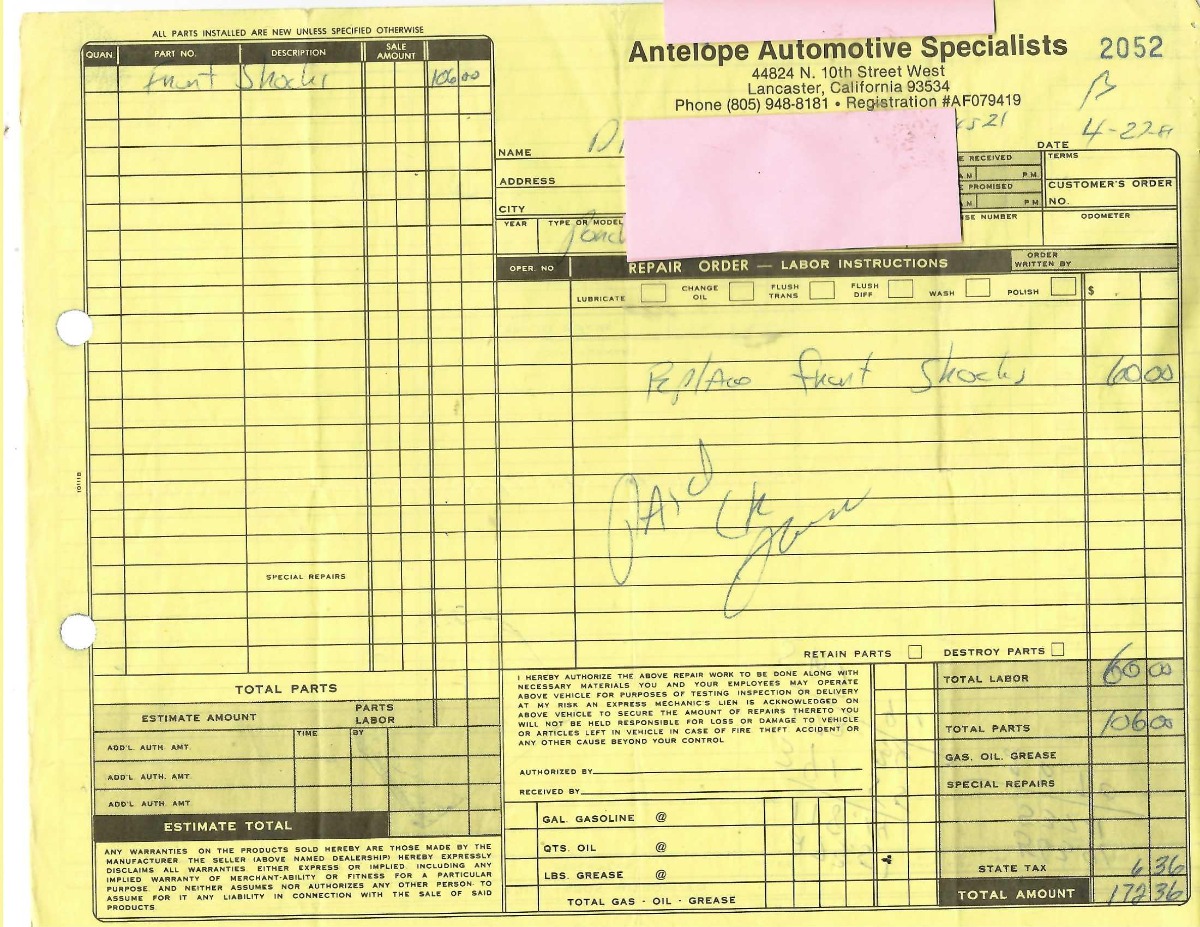 ALL PARTS INSTALLED ARE NEW UNLESS SPECIFIED OTHERWISE
QUAN. PART NO. DESCRIPTION SALE AMOUNT
Front Shocks 106 00
Antelope Automotive Specialists 2052
44824 N. 10th Street West
Lancaster, California 93534
Phone (805) 948-8181 • Registration #AF079419
4-22-
NAME
DATE
RECEIVED
TERMS
ADDRESS
P.M.
PROMISED
CUSTOMER'S ORDER
CITY
P.M.
NO.
YEAR TYPE OR MODEL
NUMBER
ODOMETER
OPER. NO REPAIR ORDER — LABOR INSTRUCTIONS ORDER WRITTEN BY
LUBRICATE CHANGE OIL FLUSH TRANS FLUSH DIFF WASH POLISH $
Replace front Shocks 60 00
PAid CK
101118
SPECIAL REPAIRS
RETAIN PARTS DESTROY PARTS
TOTAL PARTS
ESTIMATE AMOUNT PARTS LABOR
TIME BY
ADD'L. AUTH. AMT.
ADD'L AUTH. AMT.
ADD'L AUTH. AMT
ESTIMATE TOTAL
ANY WARRANTIES ON THE PRODUCTS SOLD HEREBY ARE THOSE MADE BY THE
MANUFACTURER. THE SELLER (ABOVE NAMED DEALERSHIP) HEREBY EXPRESSLY
DISCLAIMS ALL WARRANTIES. EITHER EXPRESS OR IMPLIED, INCLUDING ANY
IMPLIED WARRANTY OF MERCHANT-ABILITY OR FITNESS FOR A PARTICULAR
PURPOSE. AND NEITHER ASSUMES NOR AUTHORIZES ANY OTHER PERSON TO
ASSUME FOR IT ANY LIABILITY IN CONNECTION WITH THE SALE OF SAID
PRODUCTS.
I HEREBY AUTHORIZE THE ABOVE REPAIR WORK TO BE DONE ALONG WITH
NECESSARY MATERIALS YOU AND YOUR EMPLOYEES MAY OPERATE
ABOVE VEHICLE FOR PURPOSES OF TESTING INSPECTION OR DELIVERY
AT MY RISK AN EXPRESS MECHANIC'S LIEN IS ACKNOWLEDGED ON
ABOVE VEHICLE TO SECURE THE AMOUNT OF REPAIRS THERETO YOU
WILL NOT BE HELD RESPONSIBLE FOR LOSS OR DAMAGE TO VEHICLE
OR ARTICLES LEFT IN VEHICLE IN CASE OF FIRE THEFT ACCIDENT OR
ANY OTHER CAUSE BEYOND YOUR CONTROL
AUTHORIZED BY
RECEIVED BY
GAL. GASOLINE @
QTS. OIL @
LBS. GREASE @
TOTAL GAS - OIL - GREASE
TOTAL LABOR 60 00
TOTAL PARTS 106 00
GAS. OIL. GREASE
SPECIAL REPAIRS
STATE TAX 6 36
TOTAL AMOUNT 172 36